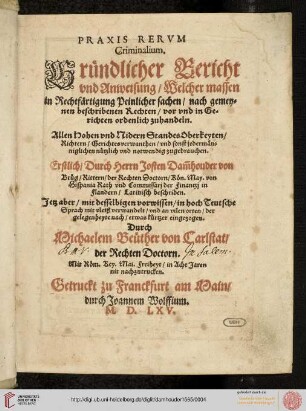 PRAXIS RERVM
Criminalium,
Gründlicher Bericht
vnd Anweisung / Welcher massen
in Rechtfärtigung Peinlicher sachen / nach gemey-
nen beschribenen Rechten / vor vnd in Ge-
richten ordenlich zuhandeln.
Allen Hohen vnd Nidern Standes Oberkeyten /
Richtern / Gerichtsverwandten / vnd sonst jedermän-
niglichen nützlich vnd notwendig zugebrauchen.
Erstlich / Durch Herrn Josten Dam̃houder von
Brüg / Rittern / der Rechten Doctorn / Röm. May. von
Hispania Rath vnd Commissarj der Finantz in
Flandern / Lateinisch beschriben.
Jetz aber / mit desselbigen vorwissen / in hoch Teutsche
Sprach mit vleiß verwandelt / vnd an vilen orten / der
gelegenheyt nach / etwas kürtzer eingezogen.
Durch
Michaelem Beüther von Carlstat /
der Rechten Doctorn.
Mit Röm. Key. Mai. Freiheyt / in Acht Jaren
nit nachzutrucken.
Getruckt zu Franckfurt am Main /
durch Joannem Wolffium.
M D. LXV.
http://digi.ub.uni-heidelberg.de/diglit/damhouder1565/0004